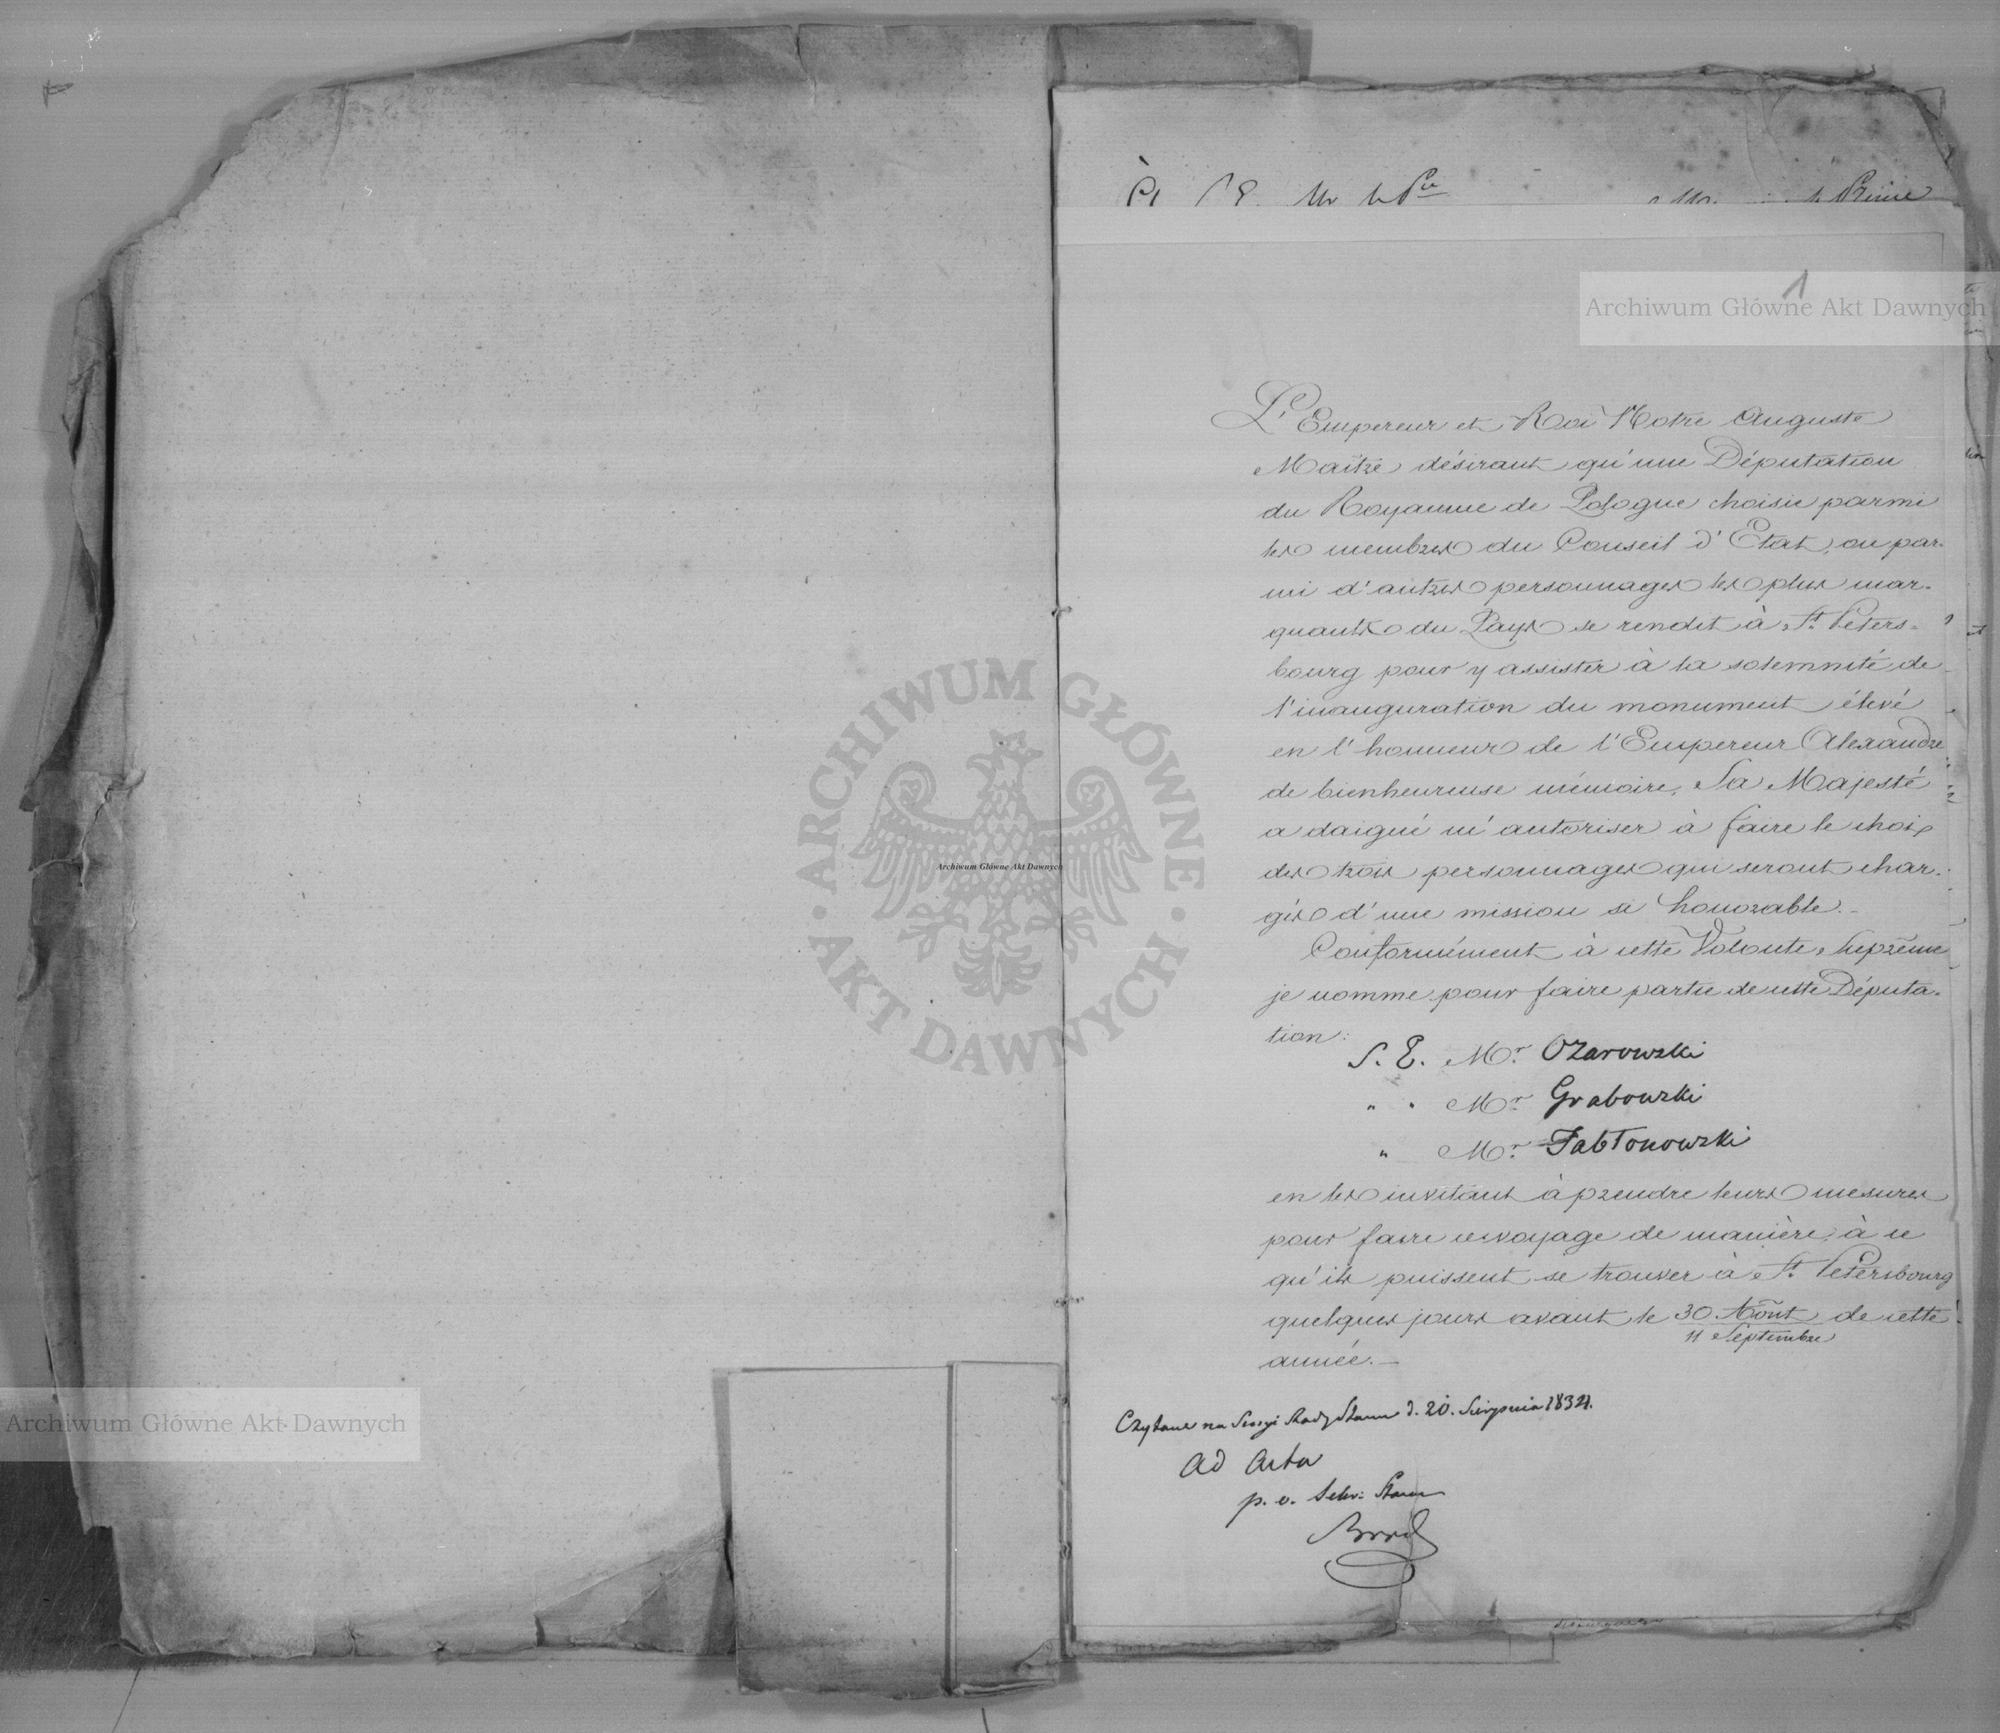 1
L'Empereur et Roi Notre Auguste
Maître désirant qu'une Députation
du Royaume de Pologne choisie parmi
les membres du Conseil d'Etat, ou par-
mi d'autres personnages les plus mar-
quants du Pays se rendit à St. Peters-
bourg pour y assister à la solemnité de
l'inauguration du monument élevé
en l'honneur de l'Empereur Alexandre
de bienheureuse mémoire, Sa Majesté
a daigné m'autoriser à faire le choix
des trois personnages qui seront char-
gés d'une mission si honorable.-
Conformément à cette Volonte Suprême
je nomme pour faire partie de cette Députa-
tion:
S. E. Mr. Ożarowski
" " Mr. Grabowski
" Mr. Jabłonowski
en les invitant à prendre leurs mesures
pour faire ce voyage de manière à ce
qu'ils puissent se trouver à St. Petersbourg
quelques jours avant le 30 Août de cette
11 Septembre
année.-
Czytane na Sessyi Rady Stanu d. 20. Sierpnia 1834.
Ad Acta
p. o. Sekr: Stanu
Archiwum Główne Akt Dawnych
Archiwum Główne Akt Dawnych
Archiwum Główne Akt Dawnych
ARCHIWUM GŁÓWNE
AKT DAWNYCH